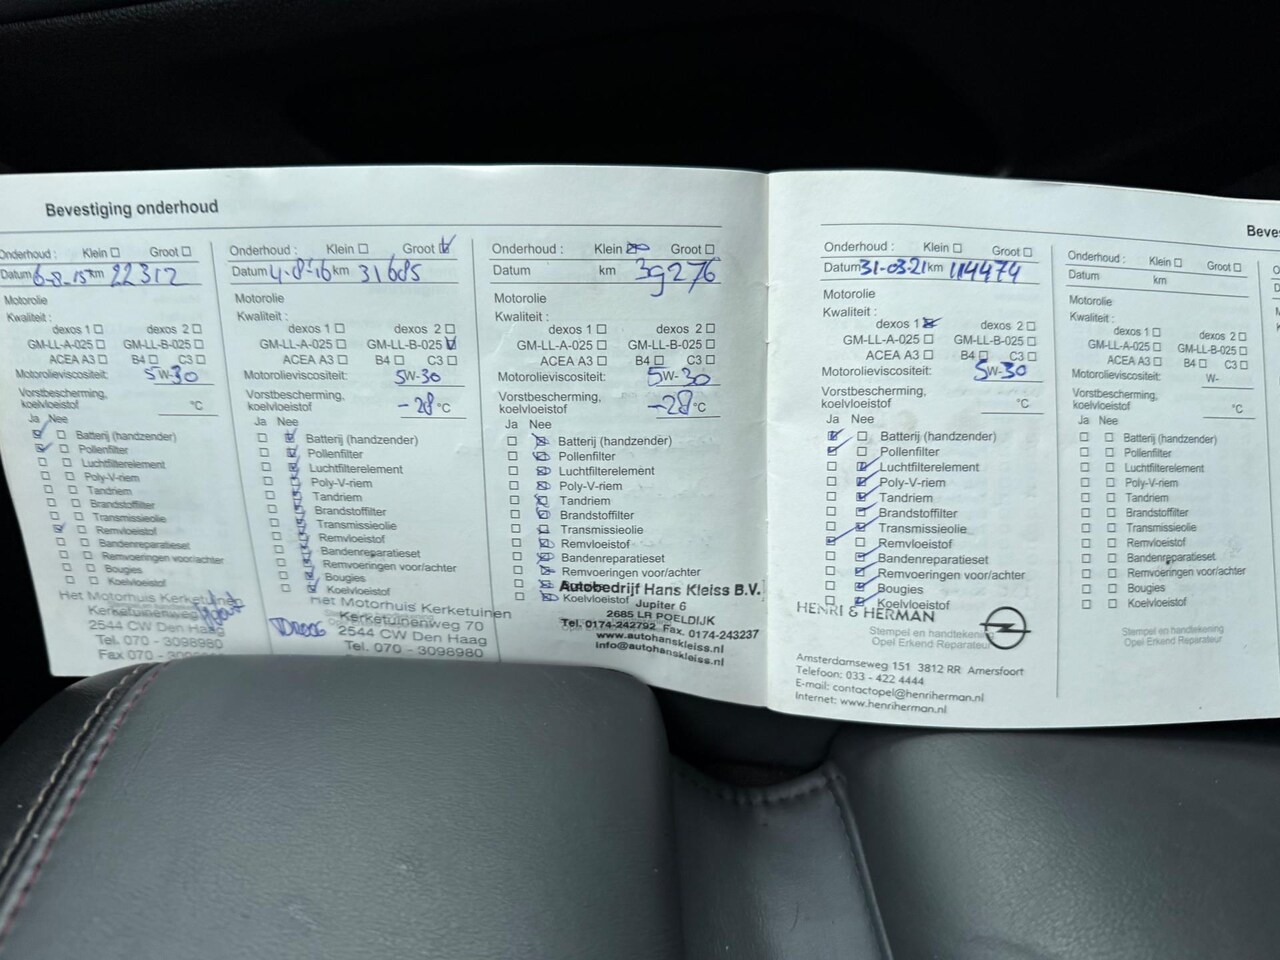 Bevestiging onderhoud
Onderhoud : Klein Groot
Datum 6-8-15 km 22312
Motorolie
Kwaliteit :
dexos 1 dexos 2
GM-LL-A-025 GM-LL-B-025
ACEA A3 B4 C3
Motorolieviscositeit: 5W-30
Vorstbescherming,
koelvloeistof °C
Ja Nee
Batterij (handzender)
Pollenfilter
Luchtfilterelement
Poly-V-riem
Tandriem
Brandstoffilter
Transmissieolie
Remvloeistof
Bandenreparatieset
Remvoeringen voor/achter
Bougies
Koelvloeistof
Het Motorhuis
Kerketuinenweg
2544 CW Den Haag
Tel. 070 - 3098980
Fax 070
Onderhoud : Klein Groot
Datum 4-8-16 km 31685
Motorolie
Kwaliteit :
dexos 1 dexos 2
GM-LL-A-025 GM-LL-B-025
ACEA A3 B4 C3
Motorolieviscositeit: 5W-30
Vorstbescherming,
koelvloeistof -28 °C
Ja Nee
Batterij (handzender)
Pollenfilter
Luchtfilterelement
Poly-V-riem
Tandriem
Brandstoffilter
Transmissieolie
Remvloeistof
Bandenreparatieset
Remvoeringen voor/achter
Bougies
Koelvloeistof
Het Motorhuis Kerketuinen
Kerketuinenweg 70
2544 CW Den Haag
Tel. 070 - 3098980
Onderhoud : Klein Groot
Datum km 39276
Motorolie
Kwaliteit :
dexos 1 dexos 2
GM-LL-A-025 GM-LL-B-025
ACEA A3 B4 C3
Motorolieviscositeit: 5W-30
Vorstbescherming,
koelvloeistof -28 °C
Ja Nee
Batterij (handzender)
Pollenfilter
Luchtfilterelement
Poly-V-riem
Tandriem
Brandstoffilter
Transmissieolie
Remvloeistof
Bandenreparatieset
Remvoeringen voor/achter
Autobedrijf Hans Kleiss B.V.
Koelvloeistof
Jupiter 6
2685 LR POELDIJK
Tel. 0174-242792 Fax. 0174-243237
www.autohanskleiss.nl
info@autohanskleiss.nl
Onderhoud : Klein Groot
Datum 31-03-21 km 114474
Motorolie
Kwaliteit :
dexos 1 dexos 2
GM-LL-A-025 GM-LL-B-025
ACEA A3 B4 C3
Motorolieviscositeit: 5W-30
Vorstbescherming,
koelvloeistof °C
Ja Nee
Batterij (handzender)
Pollenfilter
Luchtfilterelement
Poly-V-riem
Tandriem
Brandstoffilter
Transmissieolie
Remvloeistof
Bandenreparatieset
Remvoeringen voor/achter
Bougies
Koelvloeistof
HENRI & HERMAN
Stempel en handtekening
Opel Erkend Reparateur
Amsterdamseweg 151 3812 RR Amersfoort
Telefoon: 033 - 422 4444
E-mail: contactopel@henriherman.nl
Internet: www.henriherman.nl
Beves
Onderhoud : Klein Groot
Datum km
Motorolie
Kwaliteit :
dexos 1 dexos 2
GM-LL-A-025 GM-LL-B-025
ACEA A3 B4 C3
Motorolieviscositeit: W-
Vorstbescherming,
koelvloeistof °C
Ja Nee
Batterij (handzender)
Pollenfilter
Luchtfilterelement
Poly-V-riem
Tandriem
Brandstoffilter
Transmissieolie
Remvloeistof
Bandenreparatieset
Remvoeringen voor/achter
Bougies
Koelvloeistof
Stempel en handtekening
Opel Erkend Reparateur